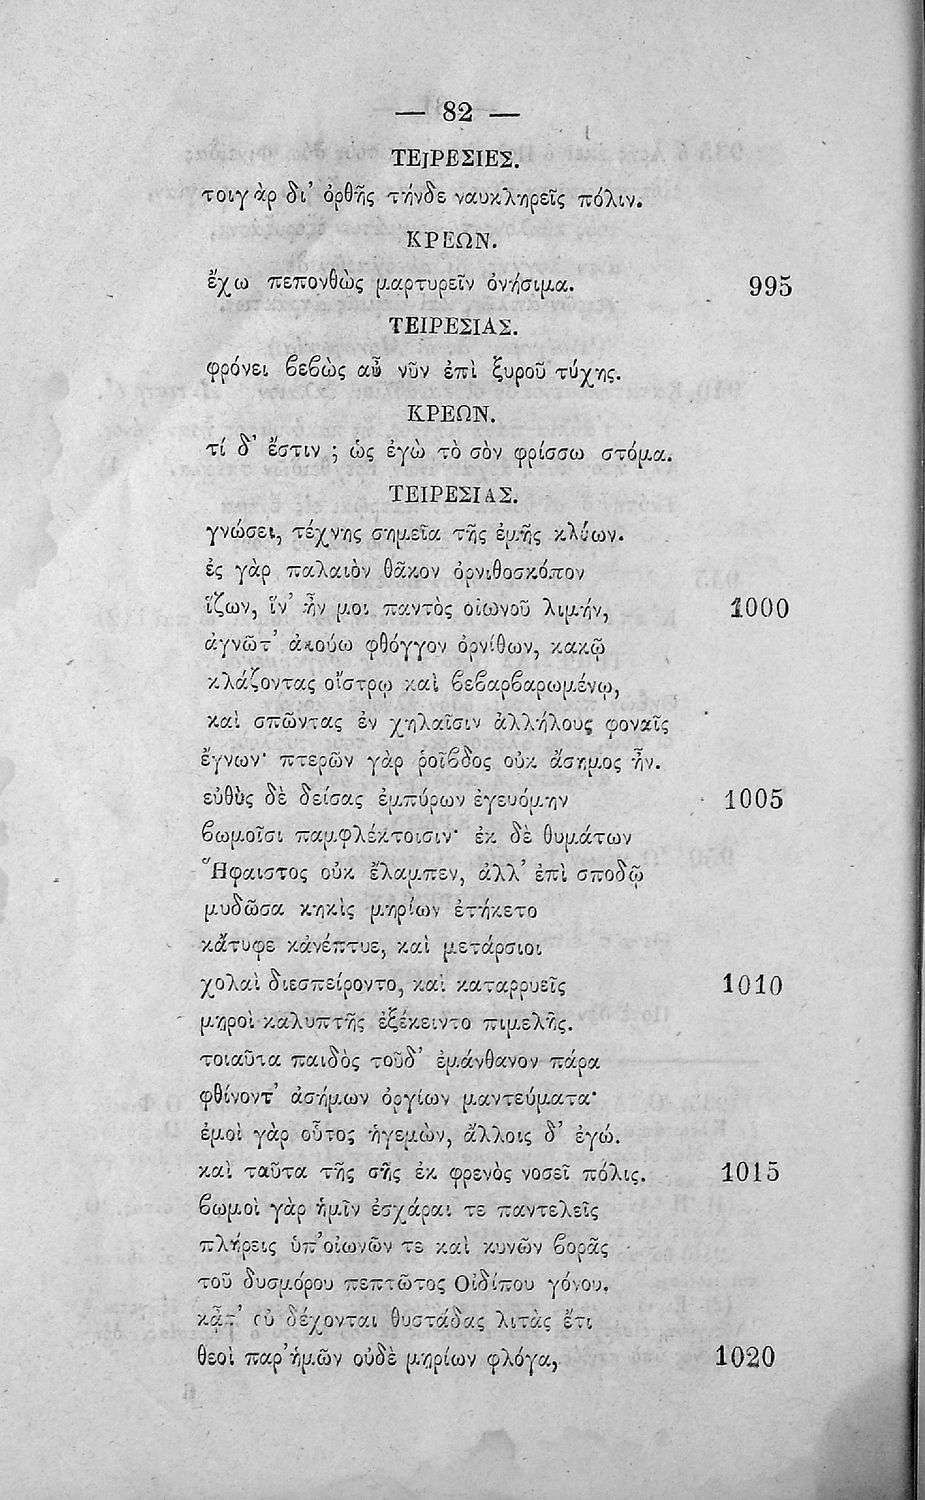 — 82 —
ΤΕΙΡΕΣΙΕΣ.
τοιγὰρ δι' ὀρθῆς τήνδε ναυκληρεῖς πόλιν.
ΚΡΕΩΝ.
ἔχω πεπονθὼς μαρτυρεῖν ὀνήσιμα. 995
ΤΕΙΡΕΣΙΑΣ.
φρόνει βεβὼς αὖ νῦν ἐπὶ ξυροῦ τύχης.
ΚΡΕΩΝ.
τί δ' ἔστιν ; ὡς ἐγὼ τὸ σὸν φρίσσω στόμα.
ΤΕΙΡΕΣΙΑΣ.
γνώσει, τέχνης σημεῖα τῆς ἐμῆς κλύων.
ἐς γὰρ παλαιὸν θᾶκον ὀρνιθοσκόπον
ἵζων, ἵν' ἦν μοι παντὸς οἰωνοῦ λιμήν, 1000
ἀγνῶτ' ἀκούω φθόγγον ὀρνίθων, κακῷ
κλάζοντας οἴστρῳ καὶ βεβαρβαρωμένῳ,
καὶ σπῶντας ἐν χηλαῖσιν ἀλλήλους φοναῖς
ἔγνων· πτερῶν γὰρ ῥοῖβδος οὐκ ἄσημος ἦν.
εὐθὺς δὲ δείσας ἐμπύρων ἐγευόμην 1005
βωμοῖσι παμφλέκτοισιν· ἐκ δὲ θυμάτων
Ἥφαιστος οὐκ ἔλαμπεν, ἀλλ' ἐπὶ σποδῷ
μυδῶσα κηκὶς μηρίων ἐτήκετο
κἄτυφε κἀνέπτυε, καὶ μετάρσιοι
χολαὶ διεσπείροντο, καὶ καταρρυεῖς 1010
μηροὶ καλυπτῆς ἐξέκειντο πιμελῆς.
τοιαῦτα παιδὸς τοῦδ' ἐμάνθανον πάρα
φθίνοντ' ἀσήμων ὀργίων μαντεύματα·
ἐμοὶ γὰρ οὗτος ἡγεμὼν, ἄλλοις δ' ἐγώ.
καὶ ταῦτα τῆς σῆς ἐκ φρενὸς νοσεῖ πόλις. 1015
βωμοὶ γὰρ ἡμῖν ἐσχάραι τε παντελεῖς
πλήρεις ὑπ'οἰωνῶν τε καὶ κυνῶν βορᾶς
τοῦ δυσμόρου πεπτῶτος Οἰδίπου γόνου.
κᾆτ' οὐ δέχονται θυστάδας λιτὰς ἔτι
θεοὶ παρ'ἡμῶν οὐδὲ μηρίων φλόγα, 1020